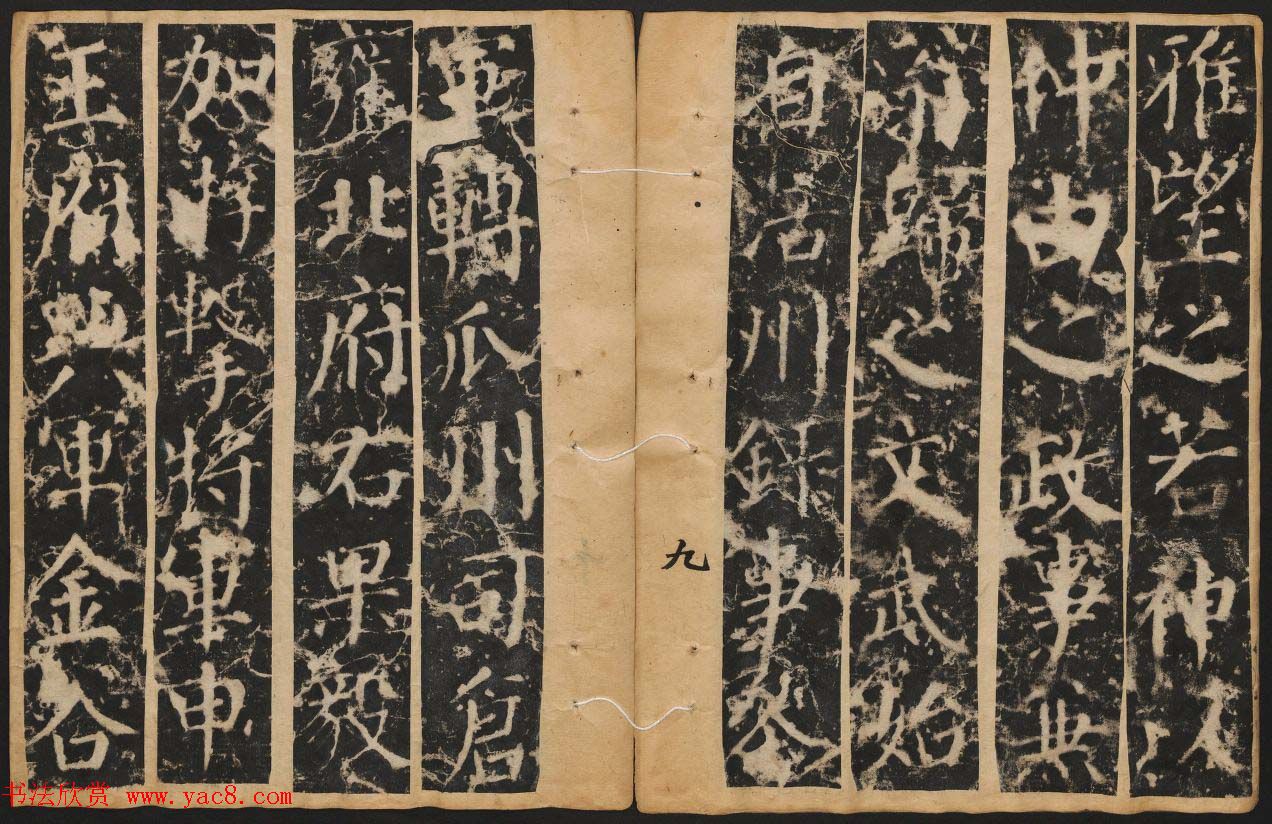 雅望之若神以
仲由之政事兼
翁歸之文武始
自涪州錄事參
九
軍轉瓜州司倉
雍北府右果毅
加游擊將軍申
王府典軍金谷
书法欣赏 www.yac8.com